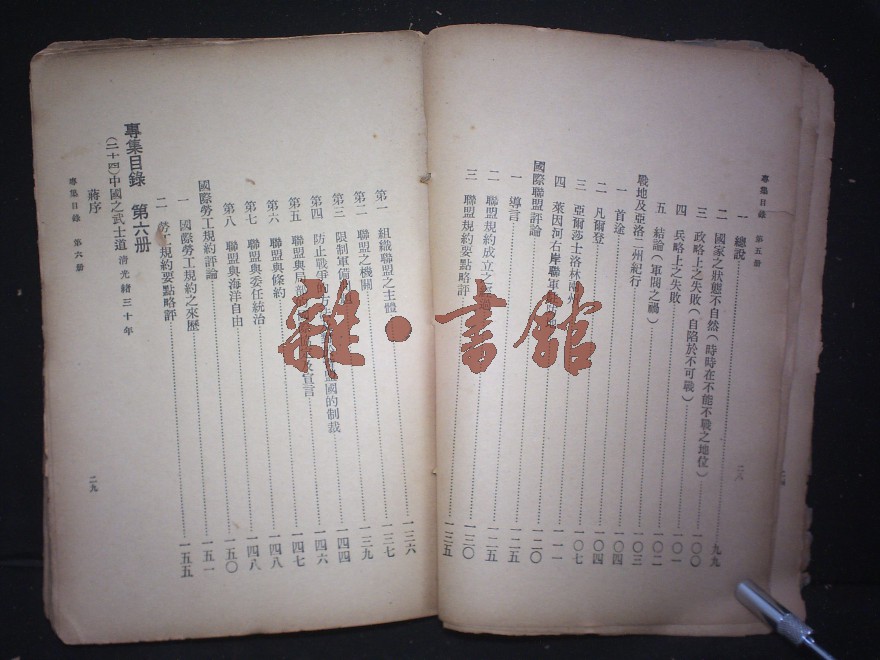 專集目錄 第五册
一 總說 九九
二 國家之狀態不自然(時時在不能不戰之地位) 一〇〇
三 政略上之失敗(自陷於不可戰) 一〇一
四 兵略上之失敗 一〇二
五 結論(軍閥之禍) 一〇三
戰地及亞洛二州紀行 一〇四
一 首途 一〇四
二 凡爾登 一〇七
三 亞爾莎士洛林兩州 一一一
四 萊因河右岸聯軍 一二〇
國際聯盟評論 一二五
一 導言 一二五
二 聯盟規約成立之 一三〇
三 聯盟規約要點略評 一三五
二八
第一 組織聯盟之主體 一三六
第二 聯盟之機關 一三七
第三 限制軍備 一三九
第四 防止戰爭 盟國的制裁 一四四
第五 聯盟與局部 及宣言 一四六
第六 聯盟與條約 一四七
第七 聯盟與委任統治 一四八
第八 聯盟與海洋自由 一四八
國際勞工規約評論 一五〇
一 國際勞工規約之來歷 一五一
二 勞工規約要點略評 一五五
專集目錄 第六册
(二十四)中國之武士道 清光緒三十年
蔣序
專集目錄 第六册
二九
雜·書館